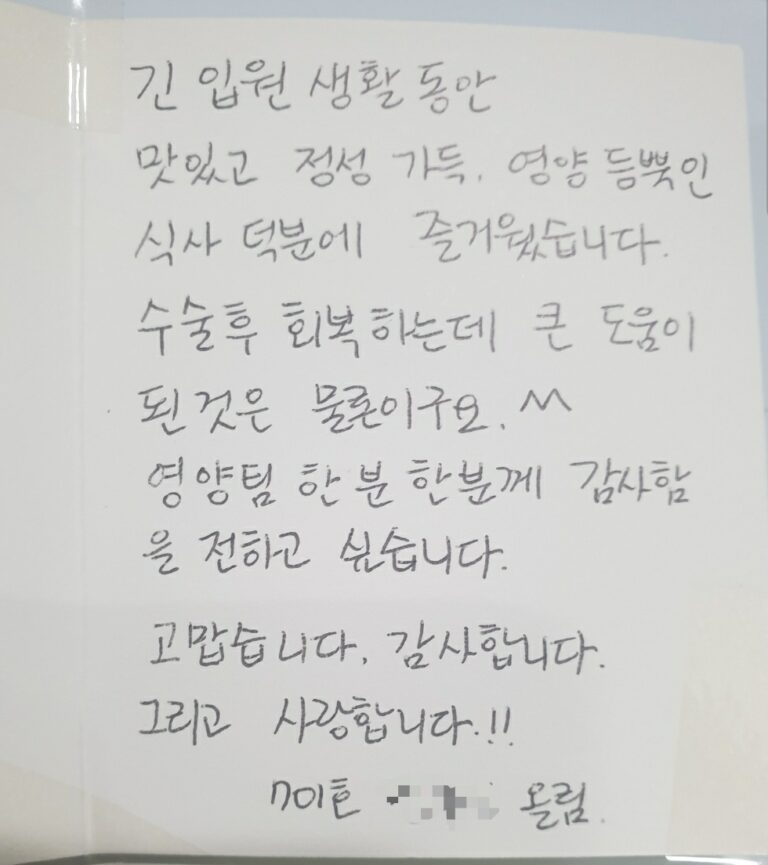 긴 입원 생활 동안
맛있고 정성 가득, 영양 듬뿍인
식사 덕분에 즐거웠습니다.
수술후 회복하는데 큰 도움이
된것은 물론이구요. ^^
영양팀 한분 한분께 감사함
을 전하고 싶습니다.
고맙습니다. 감사합니다.
그리고 사랑합니다.!!
701호 올림.